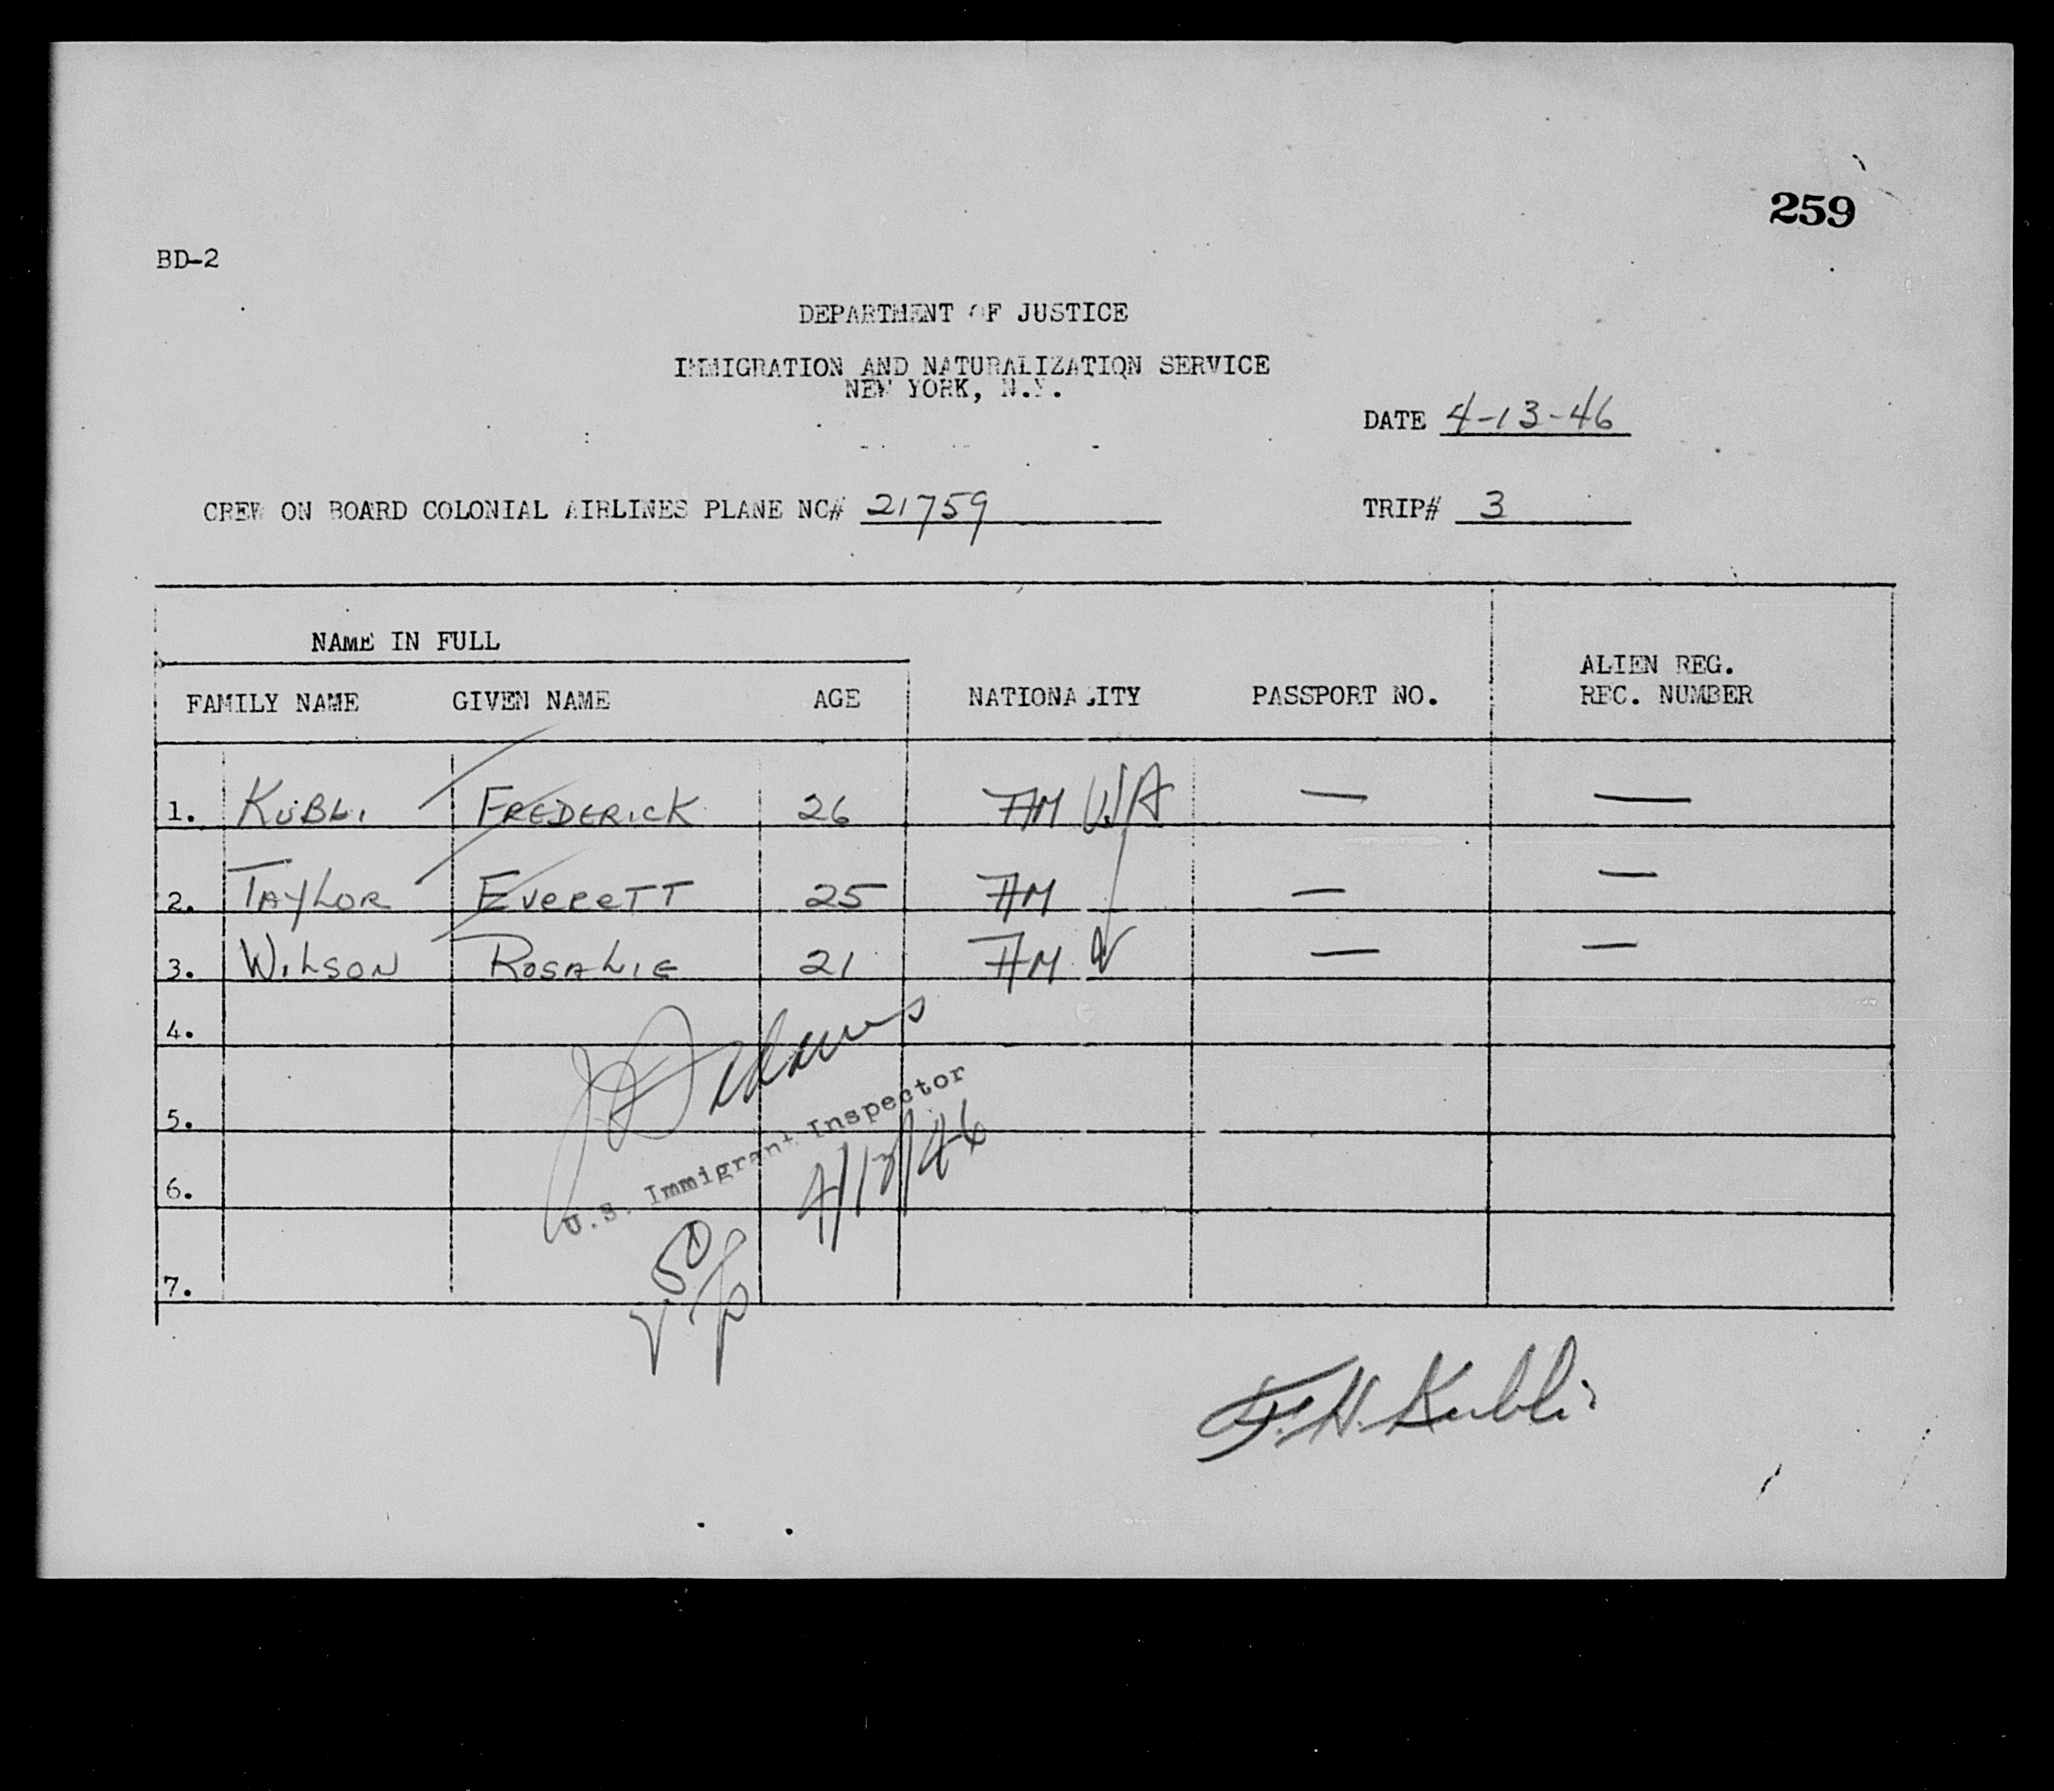 259
BD-2
DEPARTMENT OF JUSTICE
IMMIGRATION AND NATURALIZATION SERVICE
NEW YORK, N.Y.
DATE 4-13-46
CREW ON BOARD COLONIAL AIRLINES PLANE NC# 21759 TRIP# 3
NAME IN FULL
ALIEN REG.
FAMILY NAME GIVEN NAME AGE NATIONALITY PASSPORT NO. REC. NUMBER
1. KUBLI FREDERICK 26 AM — —
2. TAYLOR EVERETT 25 AM — —
3. WILSON ROSALIE 21 AM — —
4.
Adams
5.
U.S. Immigrant Inspector
4/13/46
6.
7.
F.H. Kubli